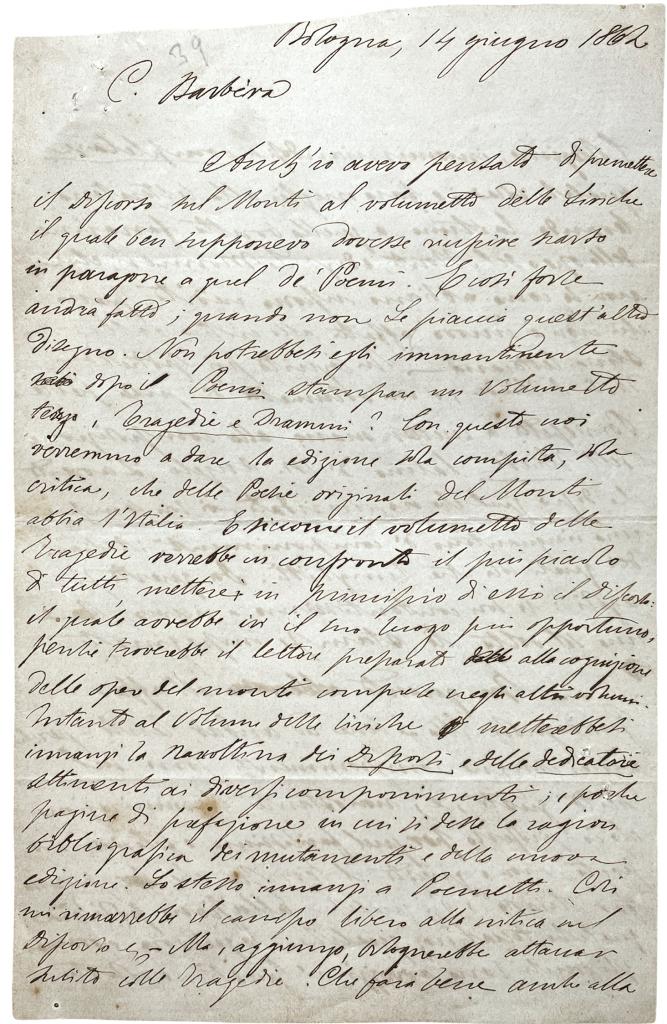 39
Bologna, 14 giugno 1862
C. Barbèra
Anch'io avevo pensato di premettere
il discorso sul Monti al volumetto delle Liriche
il quale ben supponevo dovesse riuscire scarso
in paragone a quel de' Poemi. E così forse
andrà fatto; quando non Le piaccia quest'altro
disegno. Non potrebbesi egli immantinente
dopo il Poemi stampare un volumetto
terzo, Tragedie e Drammi? Con questo noi
verremmo a dare la edizione sola compita, sola
critica, che delle Poesie originali del Monti
abbia l'Italia. E siccome il volumetto delle
Tragedie verrebbe in confronto il più piccolo
di tutti, metterei in principio di esso il discorso:
il quale avrebbe ivi il suo luogo più opportuno,
perché troverebbe il lettore preparato alla cognizione
delle opere del Monti compite negli altri volumi.
Intanto al volume delle liriche metterebbesi
innanzi la raccoltina dei discorsi e delle dedicatorie
attinenti ai diversi componimenti; e poche
pagine di prefazione in cui si desse la ragion
bibliografica dei mutamenti e della nuova
edizione. Lo stesso innanzi a Poemetti. Così
mi rimarrebbe il campo libero alla critica nel
discorso e, – Ma, aggiungo, bisognerebbe attaccar
subito colle Tragedie. Che farà bene anche alla